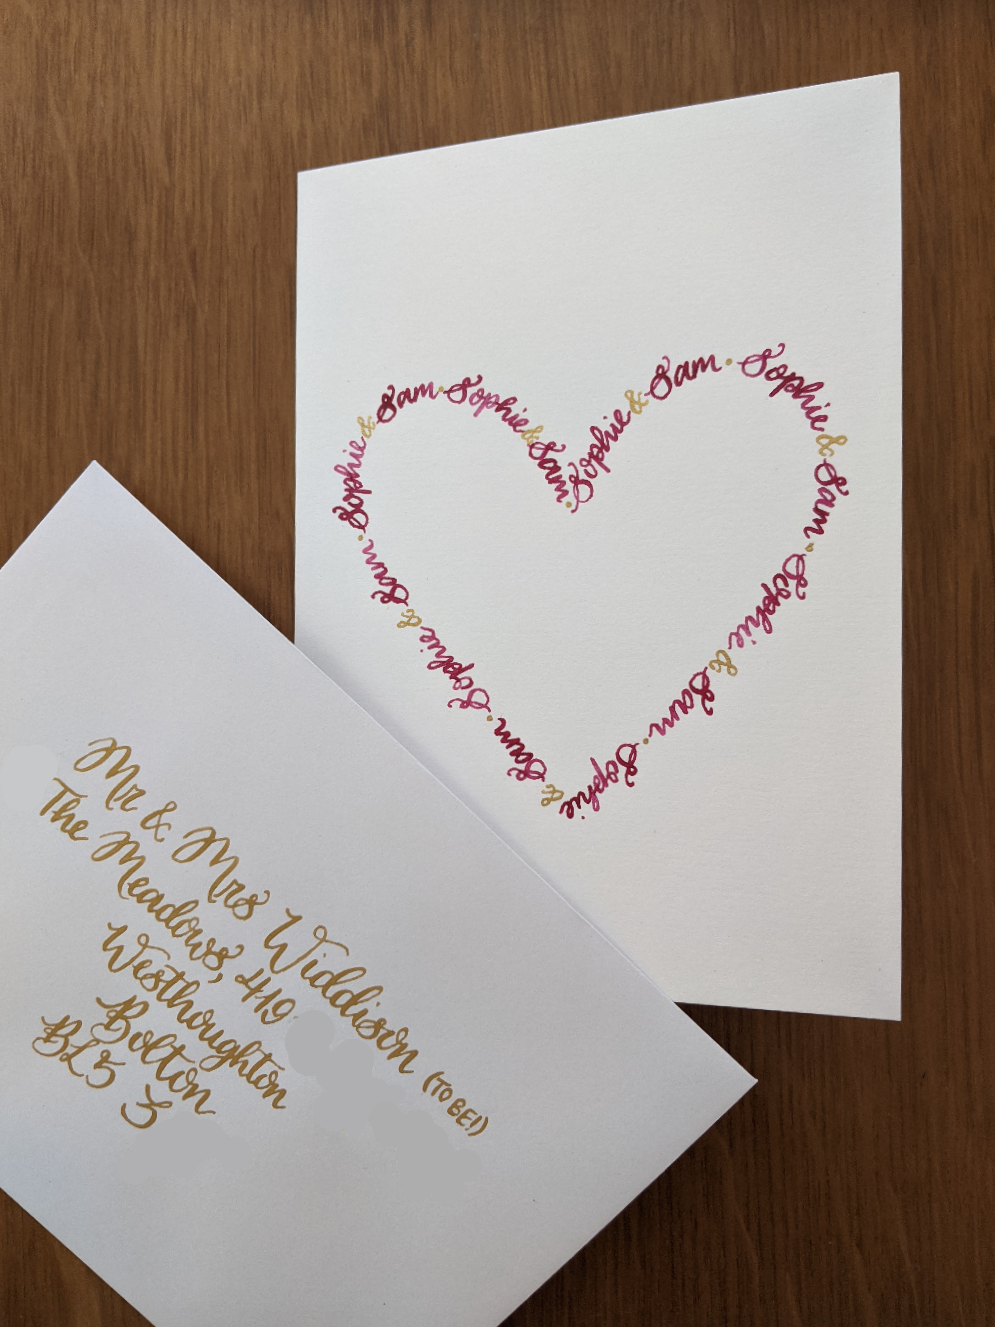 Sophie & Sam · Sophie & Sam · Sophie & Sam · Sophie & Sam · Sophie & Sam · Sophie & Sam · Sophie & Sam ·
Mr & Mrs Widdison (TO BE!)
The Meadows, 419
Westhoughton
Bolton
BL5 3